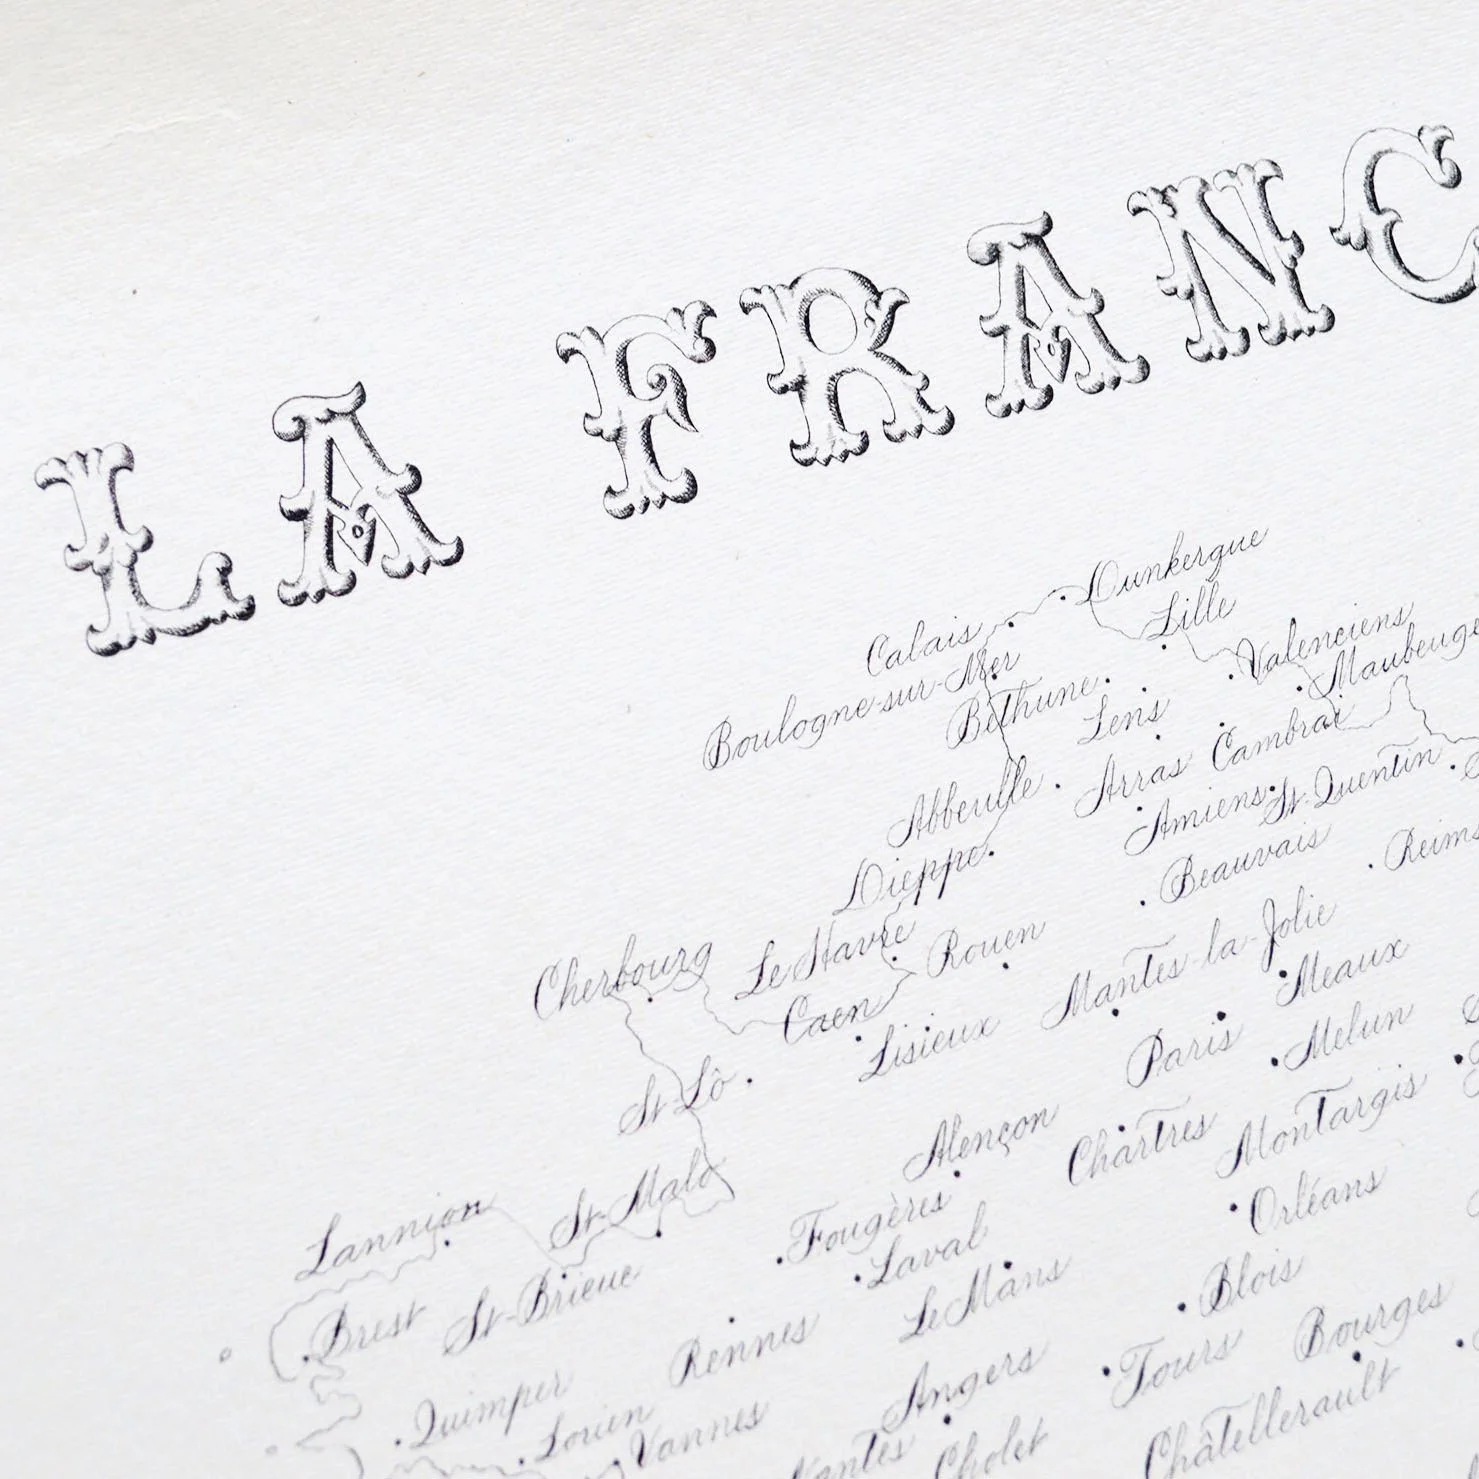 LA FRANC
Dunkergue
Lille
Calais
Valenciens
Boulogne-sur-Mer
Maubeuge
Béthune
Lens
Cambrai
Abbeville
Arras
St-Quentin
Amiens
Dieppe
Beauvais
Reims
Cherbourg
Le Havre
Rouen
Mantes-la-Jolie
Caen
Meaux
Lisieux
Paris
Melun
St-Lô
Alençon
Chartres
Montargis
St-Malo
Lannion
Fougères
Orléans
Laval
Brest
St-Brieuc
Le Mans
Blois
Rennes
Tours
Bourges
Quimper
Angers
Lorien
Vannes
Nantes
Cholet
Châtellerault